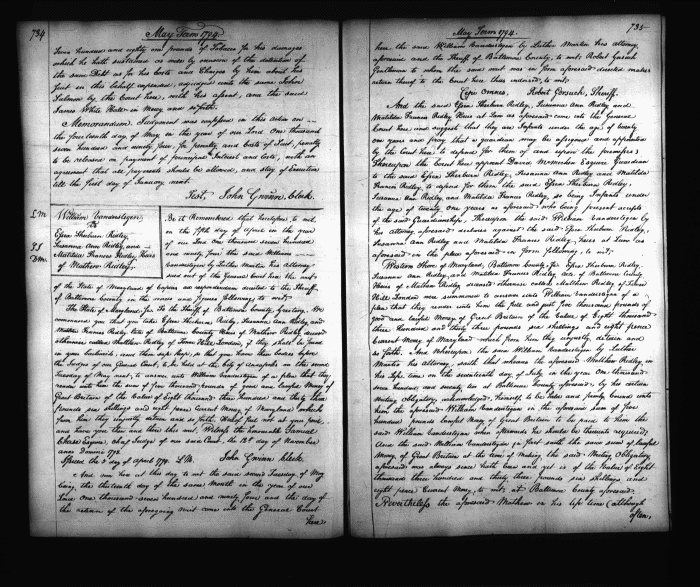 734
May Term 1794.
four hundred and eighty one pounds of Tobacco for his damages
which he hath sustained as well by occasion of the detention of
the same Debt as for his Costs and Charges by him about his
suit in this behalf expended, adjudged unto the same John
by the Court here, with his assent, and the said
James White in Mercy and so forth.
Memorandum. Judgment was confessed in this action on
the fourteenth day of May in the year of our Lord One thousand
seven hundred and ninety four, for penalty and Costs of Suit, penalty
to be released on payment of principal Interest and Costs, with an
agreement that all payments should be allowed, and stay of Execution
till the first day of January next.
Test, John Gwinn, Clerk.
William Vanderstegen
vs
Essex Sherburn Ridley,
Susanna Ann Ridley and
Matilda Frances Ridley, Heirs
of Mathew Ridley.
Be it Remembered that heretofore, to wit
on the day of April in the year
of our Lord One thousand seven hundred
and ninety four the said William
Vanderstegen by Luther Martin his attorney
sued out of the General Court here the writ
of the State of Maryland of Capias ad respondendum directed to the Sheriff
of Baltimore County in the words and figures following to wit:
The State of Maryland, ss. To the Sheriff of Baltimore County, Greeting. We
command you that you take Essex Sherburn Ridley, Susanna Ann Ridley and
Matilda Frances Ridley late of Baltimore County Heirs of Mathew Ridley deceased
otherwise called Matthew Ridley of Tower Hill London, if they shall be found
in your bailiwick, and them safe keep, so that you have their bodies before
the Judges of our General Court, to be held at the City of Annapolis on the second
Tuesday of May next, to answer unto William Vanderstegen of a plea that they
render unto him the sum of five thousand pounds of good and lawful Money of
Great Britain of the Value of Eight thousand three hundred and thirty three
pounds six shillings and eight pence current Money of Maryland which
from him they unjustly detain and so forth. Hereof fail not at your peril,
and have you then and there this writ. Witness the honourable Samuel
Chase Esquire, chief Judge of our said Court, the 12th day of November
anno Domini 1793.
Issued the day of April 1794. L.M. John Gwinn Clerk.
And now here at this day to wit the said second Tuesday of May
being the thirteenth day of the same Month in the year of our
Lord One thousand seven hundred and ninety four and the day of
the return of the aforegoing writ came into the General Court
here
735
May Term 1794.
here the said William Vanderstegen by Luther Martin his attorney
aforesaid and the Sheriff of Baltimore County, to wit: Robert Gorsuch
Gentleman to whom the said writ was in form aforesaid directed makes
return thereof to the Court here thus indorsed, to wit:
Cepi omnes, Robert Gorsuch, Sheriff.
And the said Essex Sherburn Ridley, Susanna Ann Ridley and
Matilda Frances Ridley Heirs at Law as aforesaid come into the General
Court here and suggest that they are Infants under the age of twenty
one years and pray that a guardian may be assigned and appointed
by the Court here to defend for them of and upon the premises.
Thereupon the Court here appoint David McMechen Esquire Guardian
to the said Essex Sherburn Ridley, Susanna Ann Ridley and Matilda
Frances Ridley, to defend for them the said Essex Sherburn Ridley,
Susanna Ann Ridley and Matilda Frances Ridley, so being Infants under
the age of twenty one years as aforesaid who being present accepts
of the said Guardianship. Thereupon the said William Vanderstegen by
his attorney aforesaid declares against the said Essex Sherburn Ridley,
Susanna Ann Ridley and Matilda Frances Ridley, Heirs at Law as
aforesaid in the plea aforesaid in form following, to wit:
Western Shore of Maryland, Baltimore County ss. Essex Sherburn Ridley,
Susanna Ann Ridley and Matilda Frances Ridley, late of Baltimore County
Heirs of Mathew Ridley deceased otherwise called Matthew Ridley of Tower
Hill London were summoned to answer unto William Vanderstegen of a
plea that they render unto him the full and just five thousand pounds of
good and lawful Money of Great Britain of the Value of Eight thousand
three Hundred and thirty three pounds six shillings and eight pence
Current Money of Maryland which from him they unjustly detain and
so forth. And Whereupon the said William Vanderstegen by Luther
Martin his attorney saith that whereas the aforesaid Matthew Ridley in
his life time on the seventeenth day of July in the year One thousand
seven hundred and seventy ten at Baltimore County aforesaid, by his certain
Writing Obligatory acknowledged himself to be held and firmly bound unto
him the aforesaid William Vanderstegen in the aforesaid sum of five
thousand pounds lawful Money of Great Britain to be paid to him the
said William Vanderstegen when he should be thereunto required;
And the said William Vanderstegen in fact saith the said sum of lawful
Money of Great Britain at the time of making the said Writing Obligatory
aforesaid was always since hath been and yet is of the Value of Eight
thousand three hundred and thirty three pounds six shillings and
eight pence Current Money, to wit, at Baltimore County aforesaid.
Nevertheless the aforesaid Mathew in his life time (although
often,